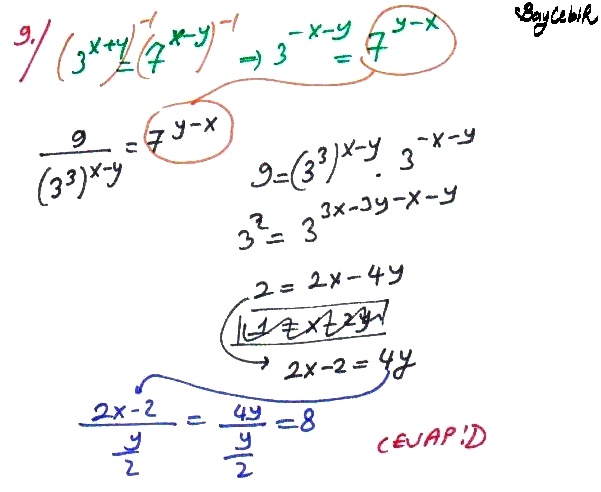 BayCebiR
9./ (3^{x+y})^{-1} = (7^{x-y})^{-1} ⇒ 3^{-x-y} = 7^{y-x}
9/(3^3)^{x-y} = 7^{y-x}
9 = (3^3)^{x-y} · 3^{-x-y}
3^2 = 3^{3x-3y-x-y}
2 = 2x-4y
2x-2 = 4y
(2x-2)/(y/2) = 4y/(y/2) = 8
CEVAP:D